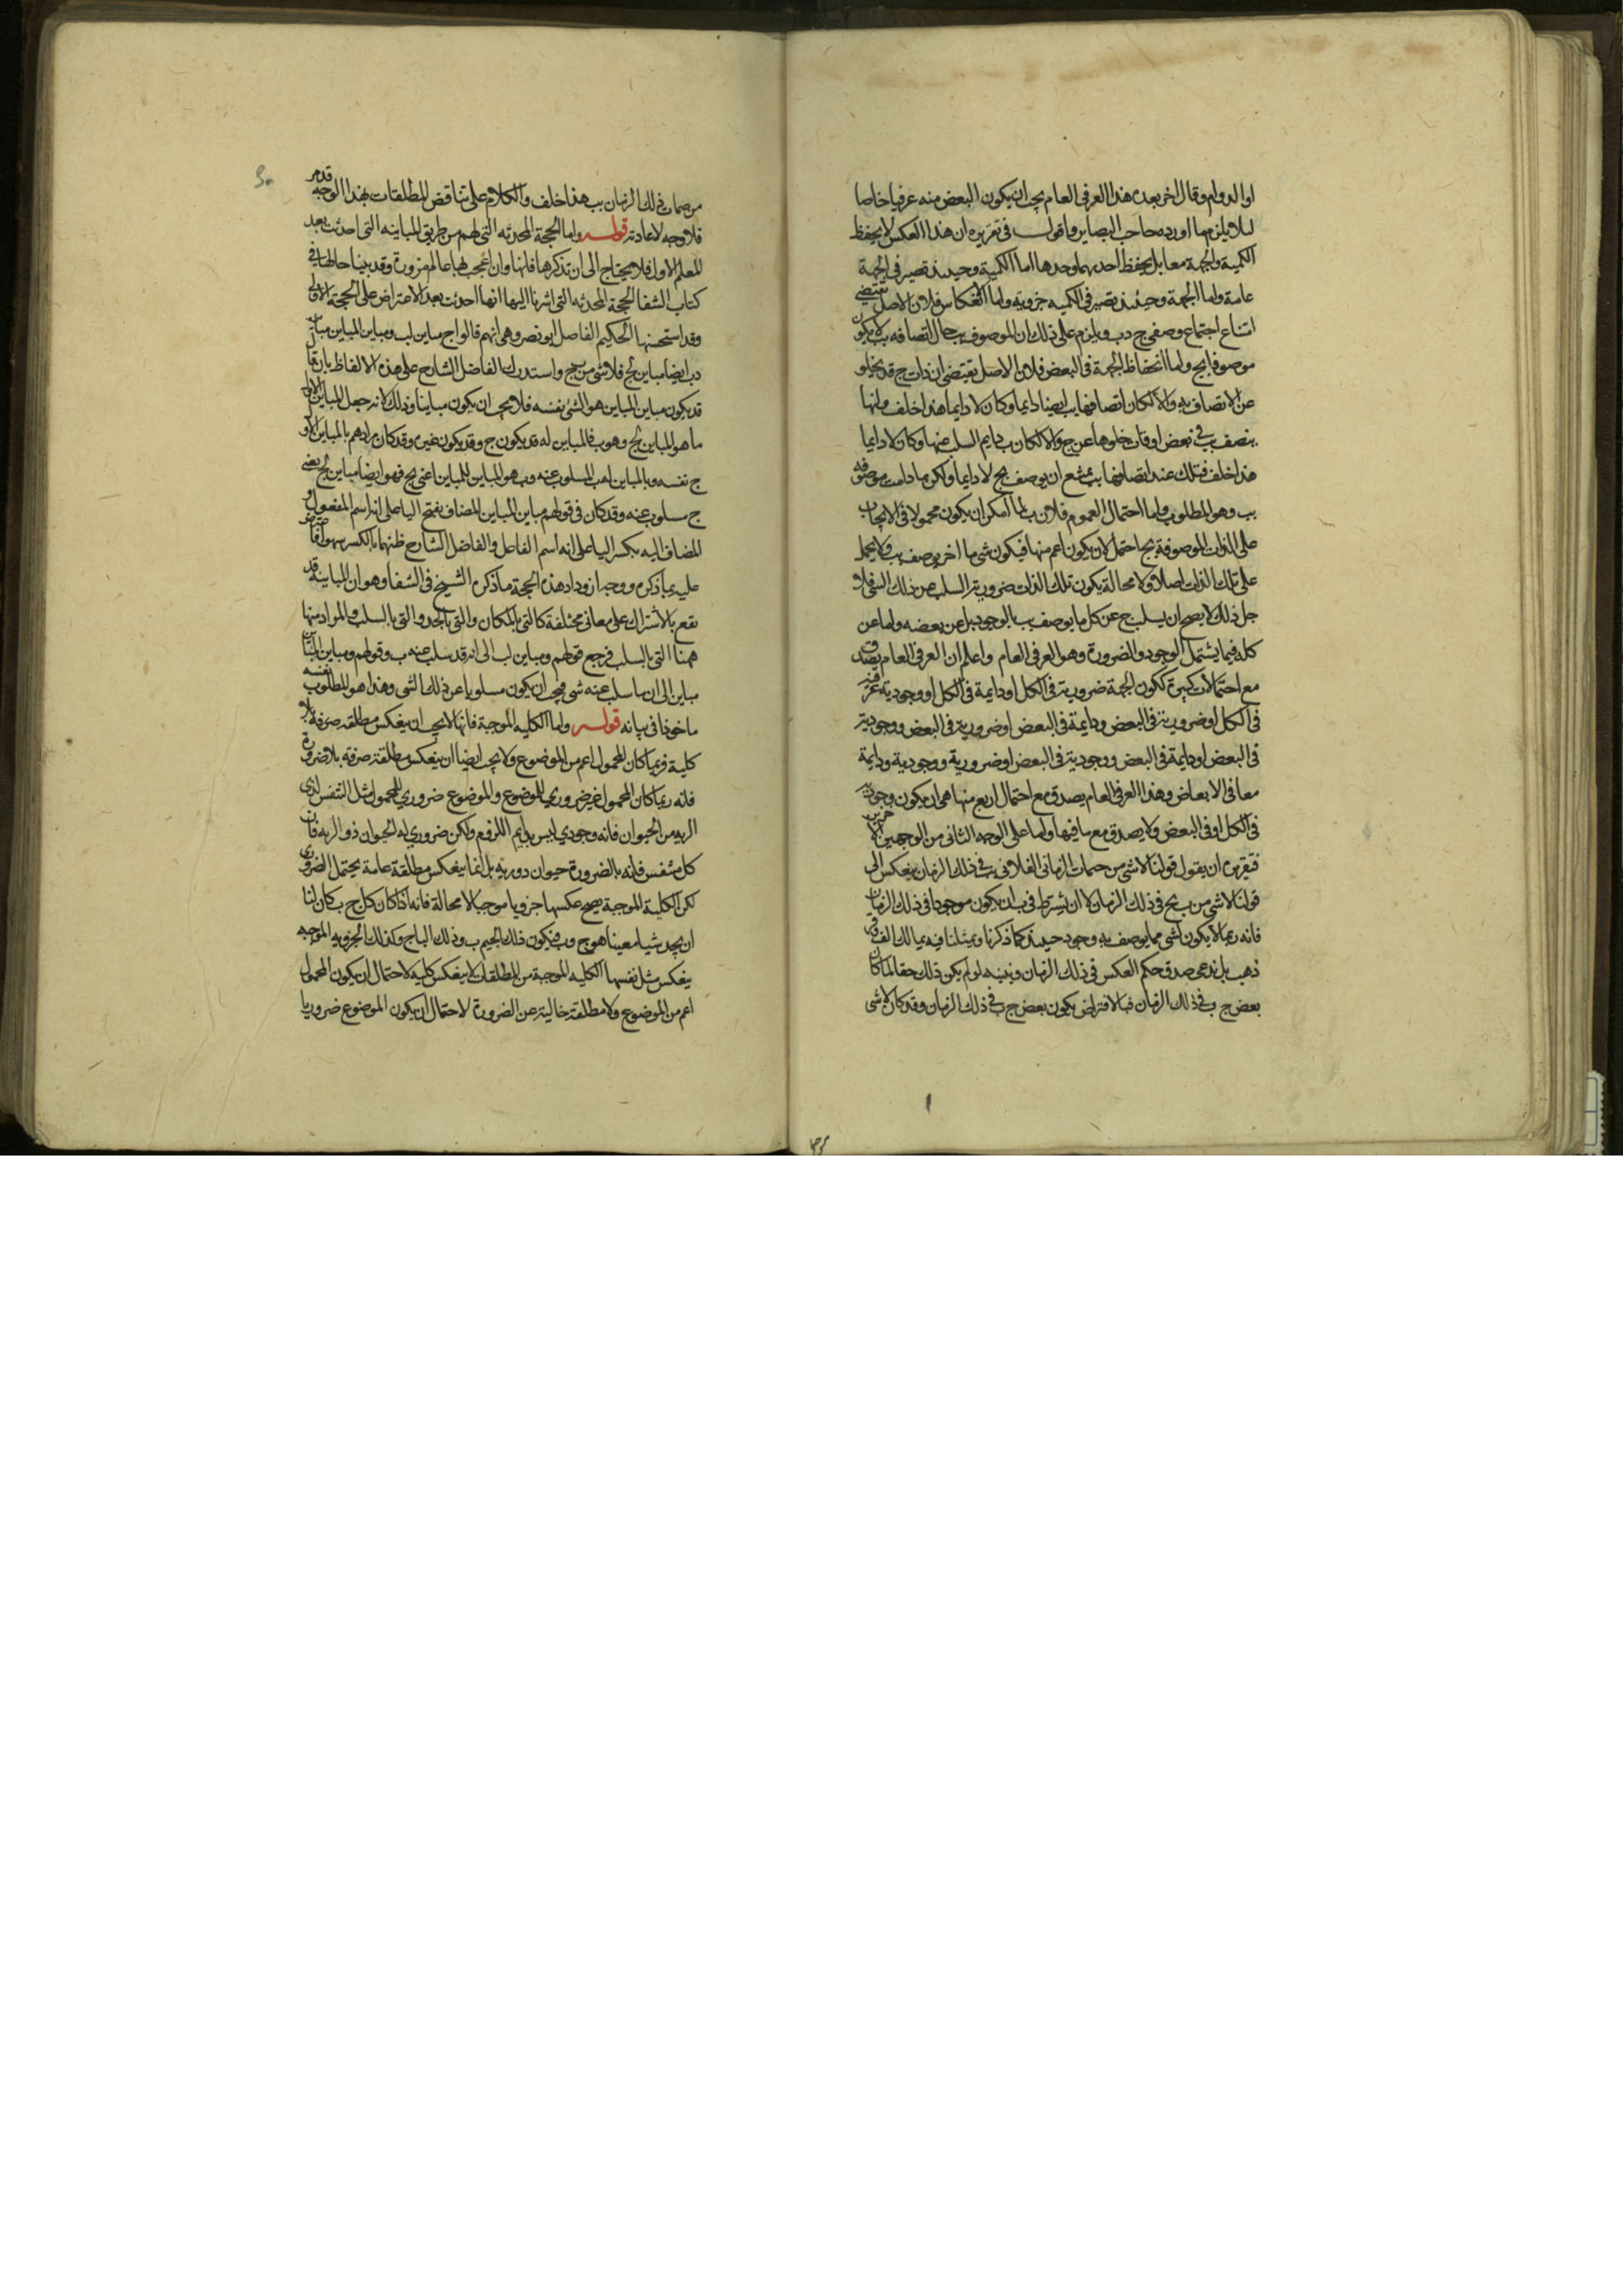 او الدوام وقال اخر بعده هذا العرفي العام يجب ان يكون البعض منه عرفيا خاصا
لئلا يلزم ما اورده صاحب البصاير واقول في تقريره ان هذا العكس لا يحفظ
الكمية والجهة معا بل يحفظ احديهما وحدها اما الكمية وحينئذ تصير في الجهة
عامة واما الجهة وحينئذ تصير في الكمية جزوية واما انعكاس فلان الاصل يقتضي
امتناع اجتماع وصفي ج وب ويلزم على ذلك ان الموصوف ب حال اتصافه ب لا يكون
موصوفا بج واما انحفاظ الجهة في البعض فلان الاصل يقتضي ان ذات ج قد يخلو
عن الاتصاف به والا لكان اتصافها ب ايضا دايما وكان لا دايما هذا خلف وانها
يتصف ب في بعض اوقات خلوها عن ج والا لكان ب دايم السلب عنها وكان لا دايما
هذا خلف فتلك عند اتصافها ب يمتنع ان يوصف بج لا دايما ولكن ما دامت موصوفه
ب وهو المطلوب واما احتمال العموم فلان ب لما امكن ان يكون محمولا في الايجاب
على الذات الموصوفة بج احتمل لان يكون اعم منها فيكون شي ما اخر يوصف ب ولا يحمل
على تلك الذات اصلا ولا محالة يكون تلك الذات ضرورية السلب عن ذلك الشي فلا
جل ذلك لا يصح ان يسلب ج عن كل ما يوصف ب بالوجود بل عن بعضه واما عن
كله فبما يشتمل الوجود والضرورة وهو العرفي العام واعلم ان العرفي العام يصدق
مع احتمالات كثيرة ككون الجهة ضرورية في الكل او دايمة في الكل او وجودية عرفية
في الكل او ضرورية في البعض ودايمة في البعض او ضرورية في البعض ووجودية
في البعض او دايمة في البعض ووجودية في البعض او ضرورية ووجودية ودايمة
معا في الابعاض وهذا العرفي العام يصدق مع احتمال اربع منها هي ان يكون وجودية
في الكل او في البعض ولا يصدق مع ما فيها واما على الوجه الثاني من الوجهين
فتقريره ان يقول قولنا لا شي من جمات الزماني الفلاني ب في ذلك الزمان ينعكس الى
قولنا لا شي من ب بج في ذلك الزمان لا ان يشترط في ب ان يكون موجودا في ذلك الزمان
فانه ربما لا يكون لشي مما يوصف به وجود حينئذ كما ذكرنا ويمثلنا فيه بمالك الف
ذهب بل ندعي صدق حكم العكس في ذلك الزمان ونبينه لو لم يكن ذلك حقا لما كان
بعض ج ب في ذلك الزمان فبالافتراض يكون بعض ج ب في ذلك الزمان وقد كان لا شي
من جمات ذلك الزمان ب هذا خلف والكلام على تناقض المطلقات بهذا الوجه قد مر
فلا وجه لاعادته قوله واما الحجة المحدثه التي لهم من طريق المباينه التي احدثت بعد
المعلم الاول فلا يحتاج الى ان نذكرها فانها وان اعجب بها عالم مزورة وقد بينا حالها في
كتاب الشفا الحجة المحدثه التي اشرنا اليها انها احدثت بعد الاعتراض على الحجة الاولى
وقد استحسنها الحكيم الفاضل ابو نصر وهي انهم قالوا ج مباين لب ومباين المباين مباين
دب ايضا مباين لج فلا شي من ب ج واستدرك الفاضل الشارح على هذه الالفاظ بان قال
قد يكون مباين المباين هو الشي نفسه فلا يجب ان يكون مباينا وذلك لانه جعل المباين الاول
ما هو المباين لج وهو ب فالمباين له قد يكون ج وقد يكون غيره وقد كان مرادهم بالمباين الاول
ج نفسه وبالمباين له ب المسلوب عنه وب هو المباين للمباين اعني لج فهو ايضا مباين لج يعني
ج مسلوب عنه وقد كان في قولهم مباين المباين المضاف بفتح اليا على انه اسم المفعول و
المضاف اليه بكسر اليا على انه اسم الفاعل والفاضل الشارح ظنهما بالكسر سهوا فاعترض
عليه بما ذكره ووجه ازوداد هذه الحجة ما ذكره الشيخ في الشفا وهو ان المباينة قد
تقع بالاشتراك على معاني مختلفة كالتي بالمكان والتي بالحد والتي بالسلب والمراد منها
ههنا التي بالسلب فرجع قولهم ومباين لب الى انه قد سلب عنه ب وقولهم ومباين المباين
مباين الى ان ما سلب عنه شي فيجب ان يكون مسلوبا عن ذلك الشي وهذا هو المطلوب نفسه
ماخوذا في بيانه قوله واما الكليه الموجبة فانها لا يجب ان ينعكس مطلقه صرفة بلا
كلية فربما كان المحمول اعم من الموضوع ولا يجب ايضا ان ينعكس مطلقة صرفه بلا ضرورة
فانه ربما كان المحمول غير ضروري للموضوع والموضوع ضروري للمحمول مثل التنفس لذي
الريه من الحيوان فانه وجودي ليس بدايم اللزوم ولكن ضروري له الحيوان ذو الريه فان
كل متنفس فانه بالضرورة حيوان ذو ريه بل انما ينعكس مطلقة عامة يحتمل الضروري
لكن الكلية الموجبة يصح عكسها جزويا موجبا لا محالة فانه اذا كان كل ج ب كان لنا
ان نجد شيا معينا هو ج وب فيكون ذلك الجيم ب وذلك الباج وكذلك الجزويه الموجبه
ينعكس مثل نفسها الكليه الموجبة من المطلقات لا ينعكس كليه لاحتمال ان يكون المحمول
اعم من الموضوع ولا مطلقة خالية عن الضرورة لاحتمال ان يكون الموضوع ضروريا